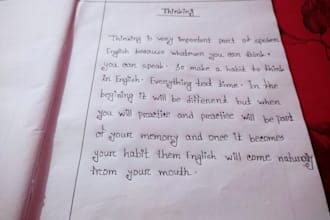 Thinking
Thinking is very important part of spoken
English because whatever you can think.
you can speak. So make a habit to think
in English. Everything text time. In the
begining it will be different but when
you will practice and practice will be part
of your memory and once it becomes
your habit them English will come naturally
from your mouth.